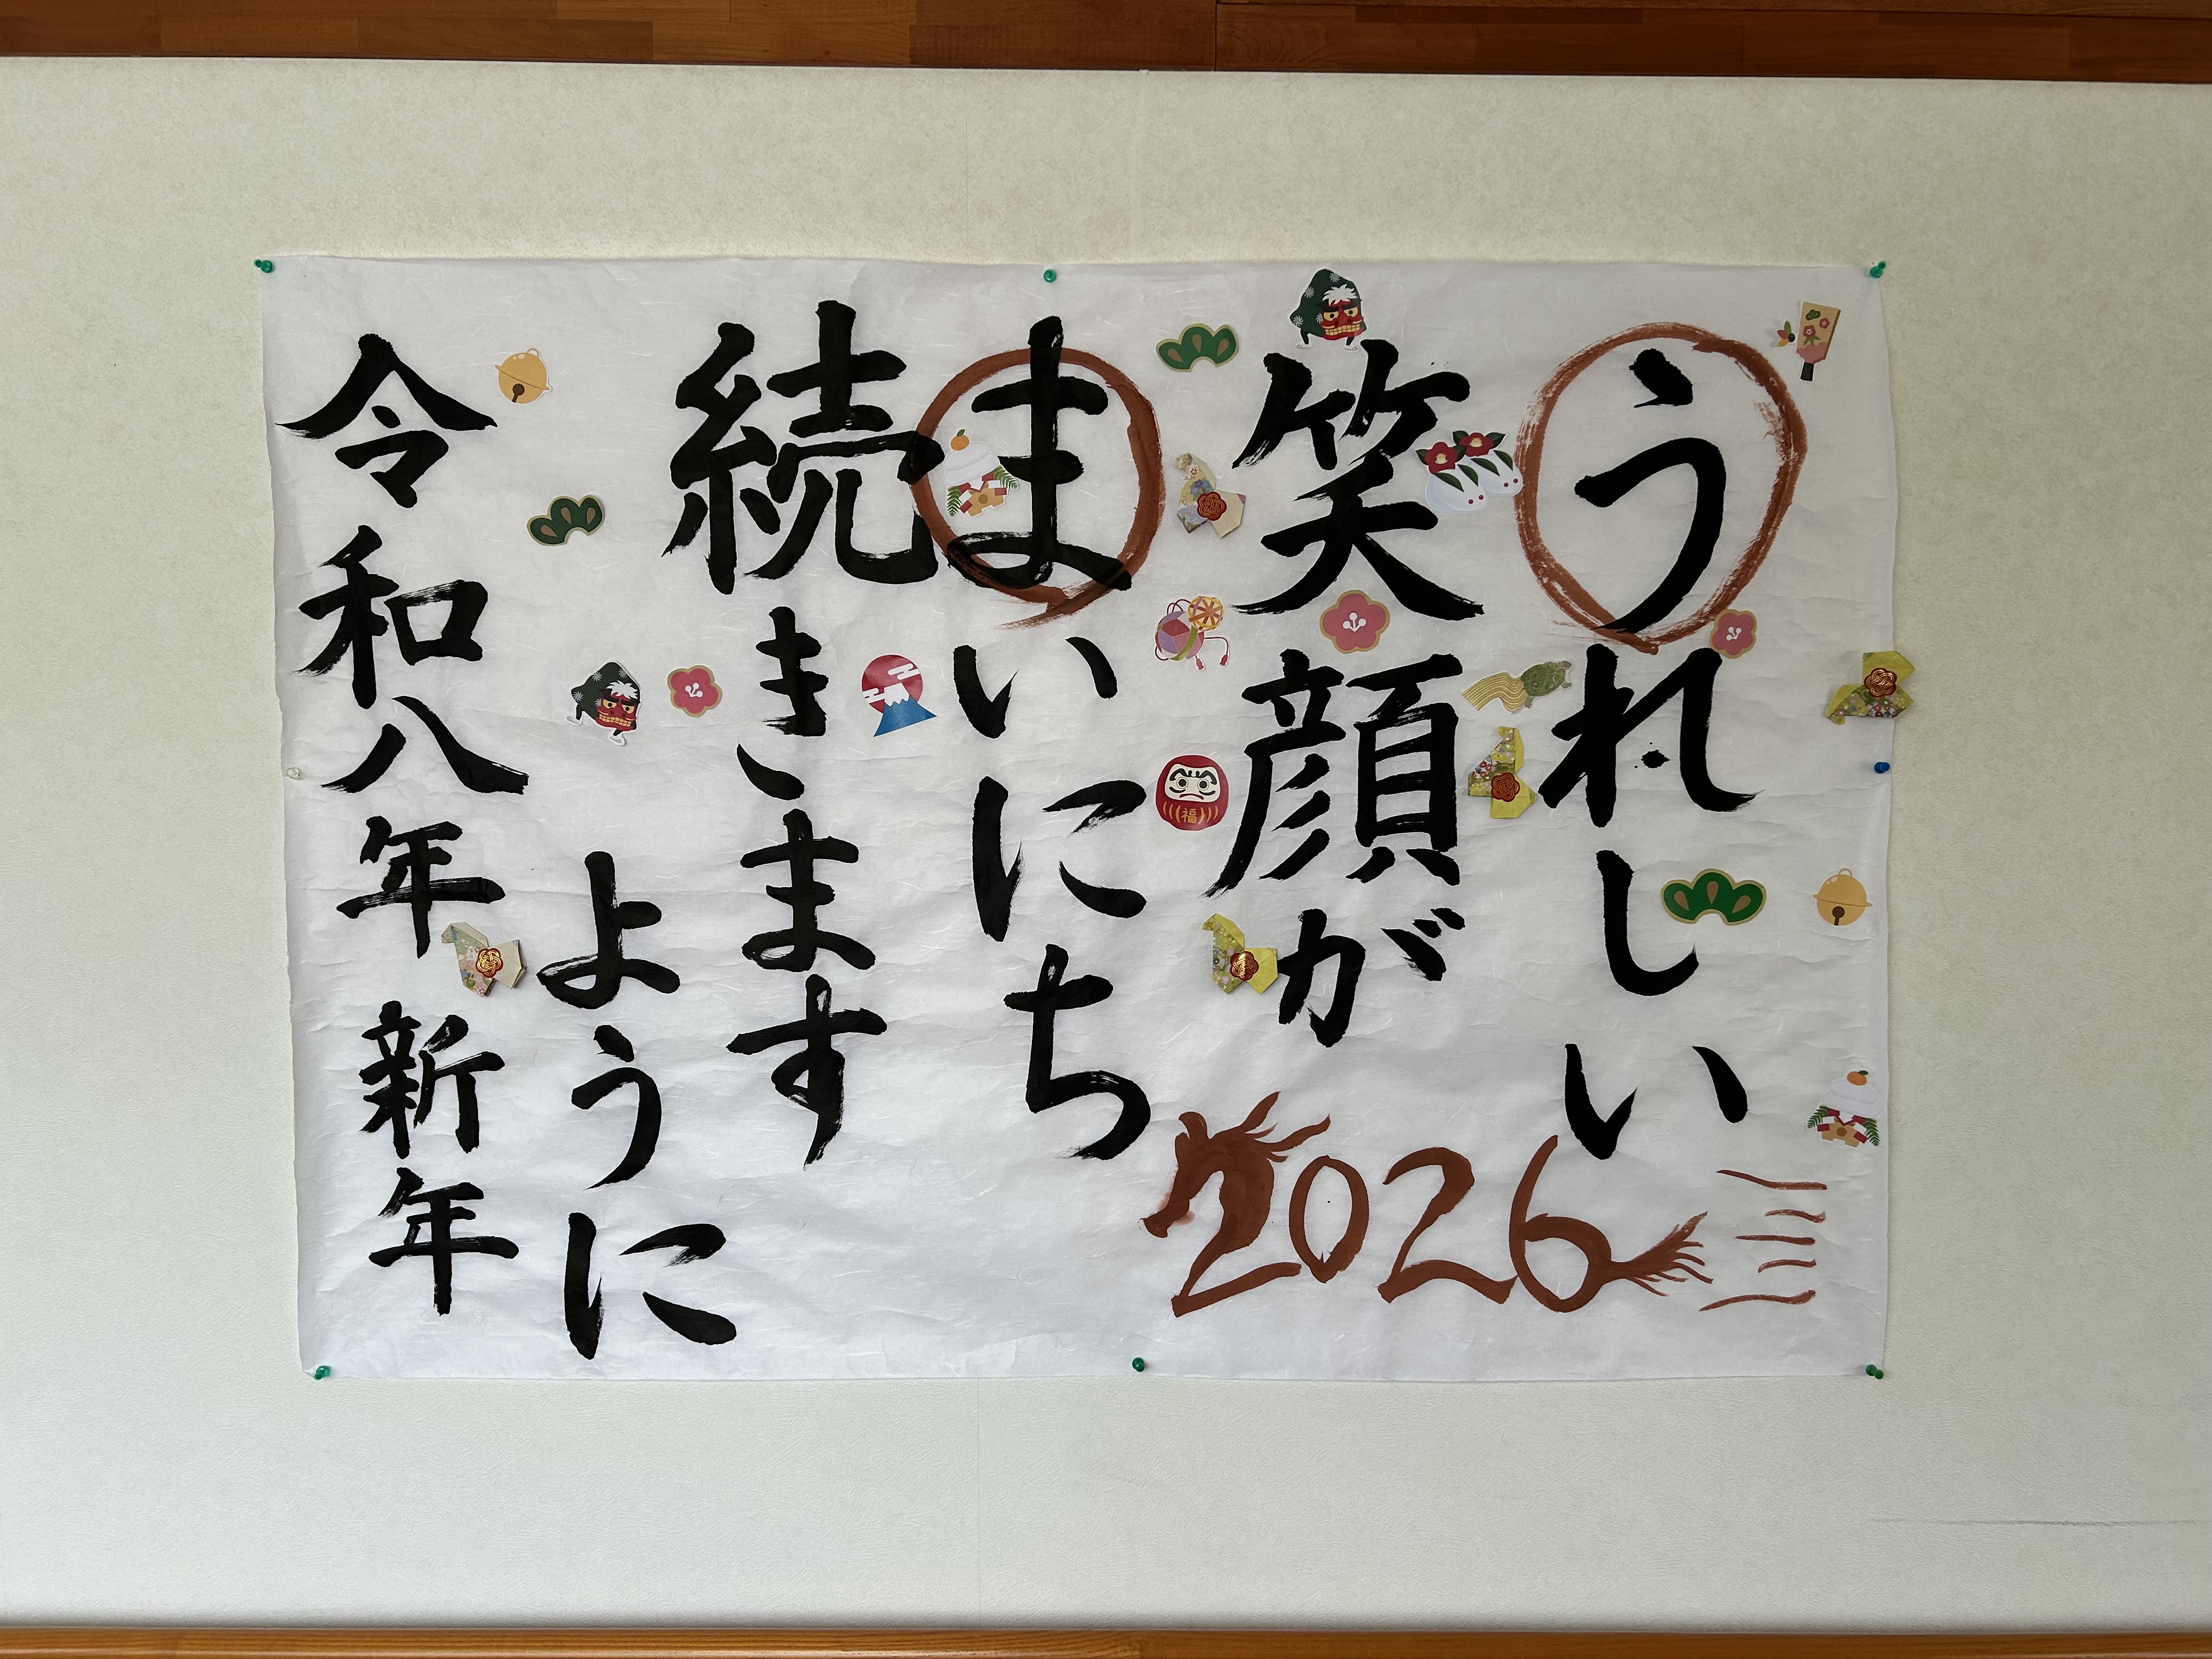 うれしい
笑顔が
まいにち
続きます
ように
令和八年 新年
2026
福